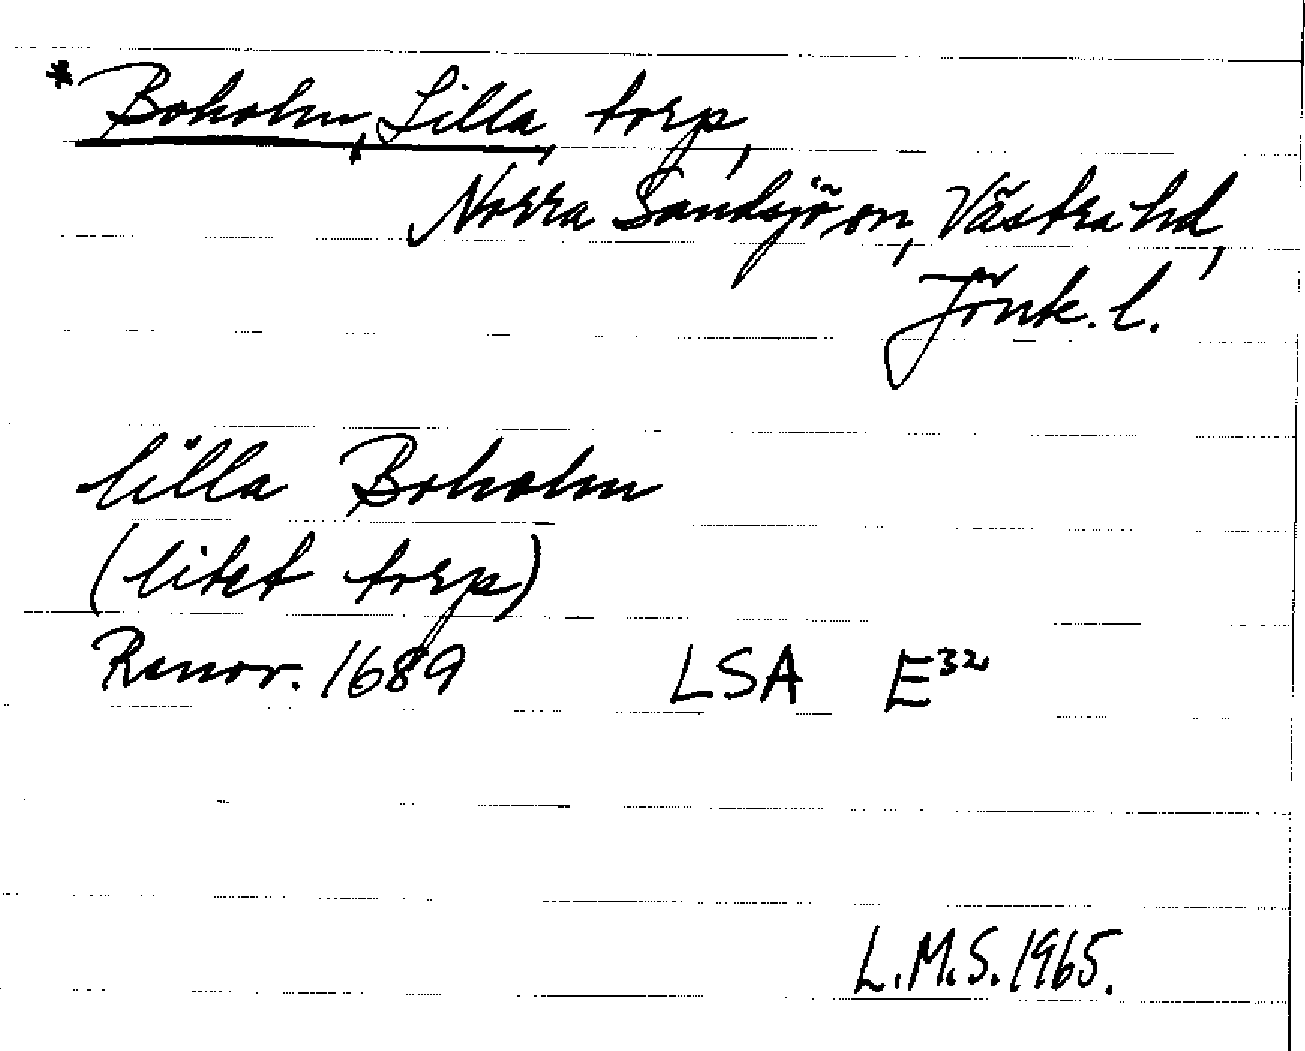 *Boholm, Lilla, torp,
Norra Sandsjö sn, Västra hd,
Jönk. l.
lilla Boholm
(litet torp)
Renov. 1689 LSA E32
L.M.S. 1965.